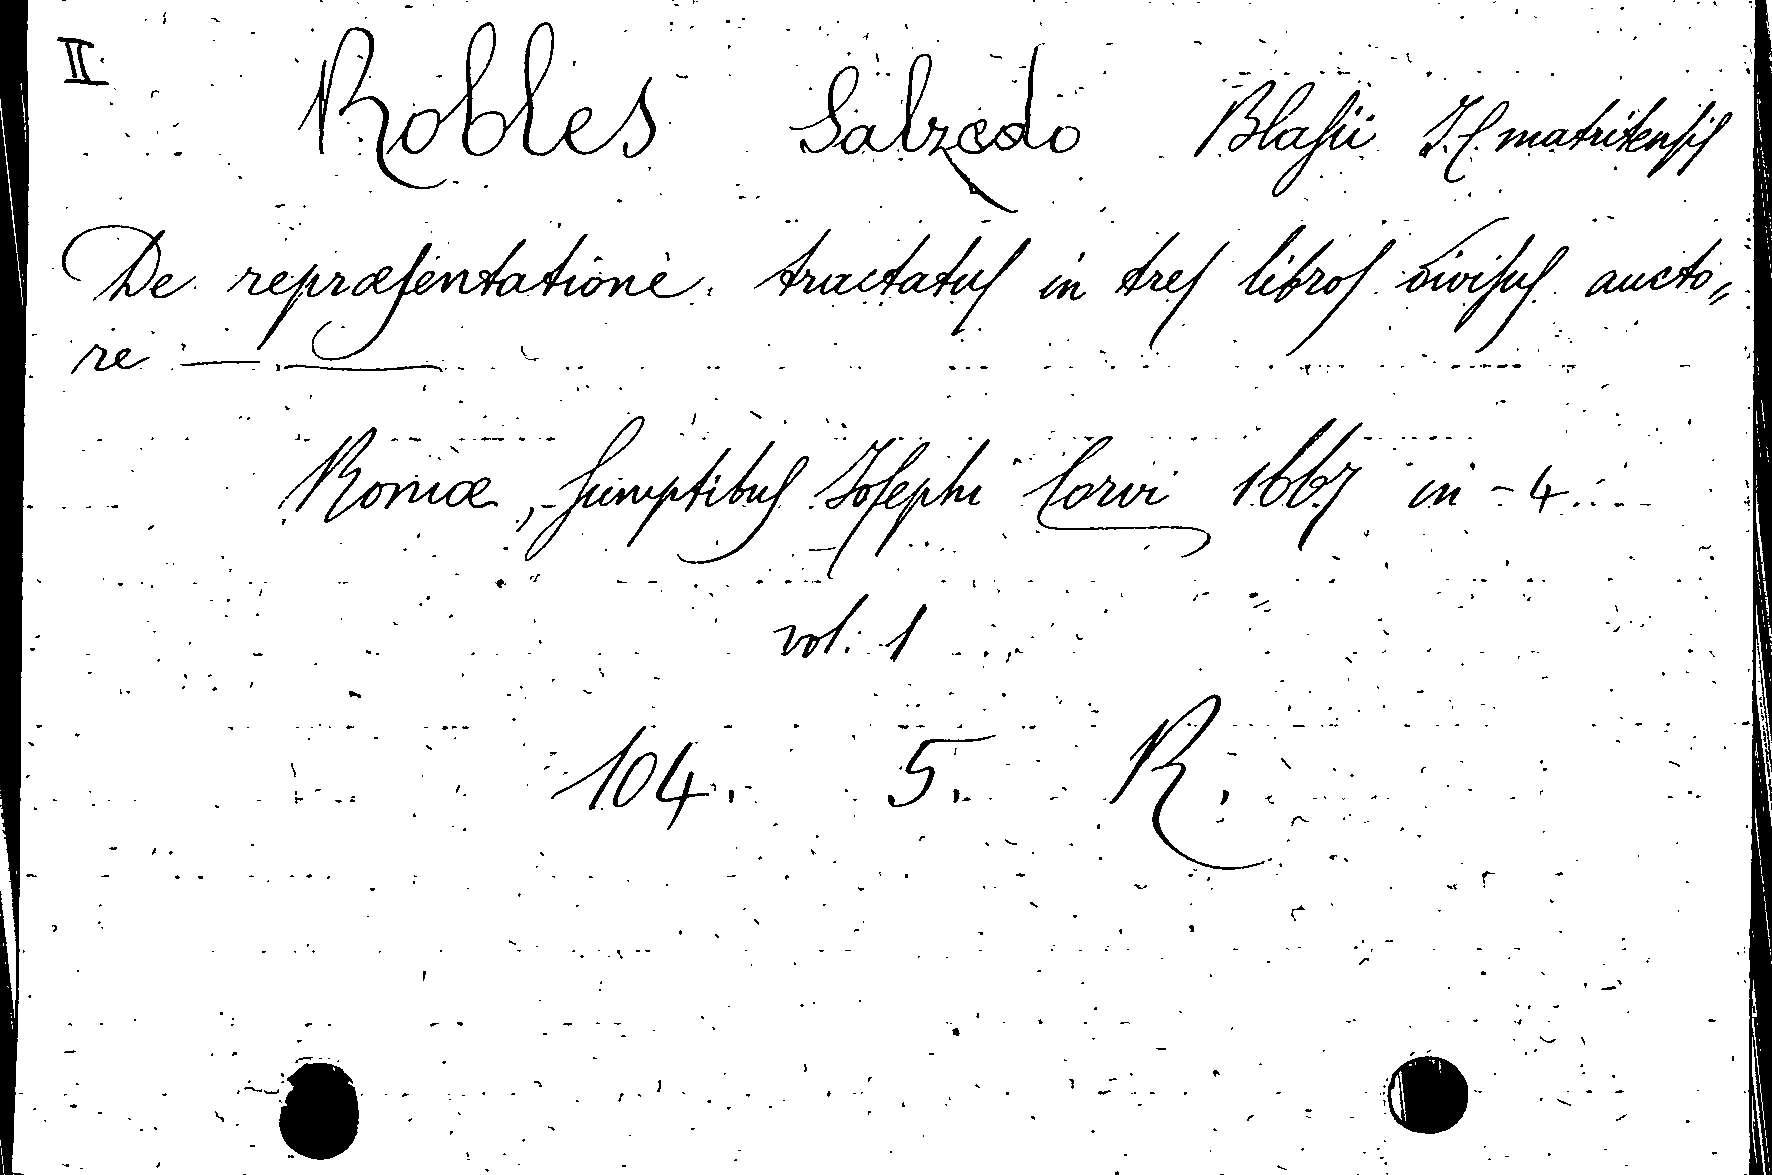 II.
Robles Salzedo Blasii J. C. matritensis
De repræsentatione. tractatus in tres libros divisus aucto„
re — —
Romæ, sumptibus Josephi Corvi 1667 in - 4.
vol. 1
104. 5. R.